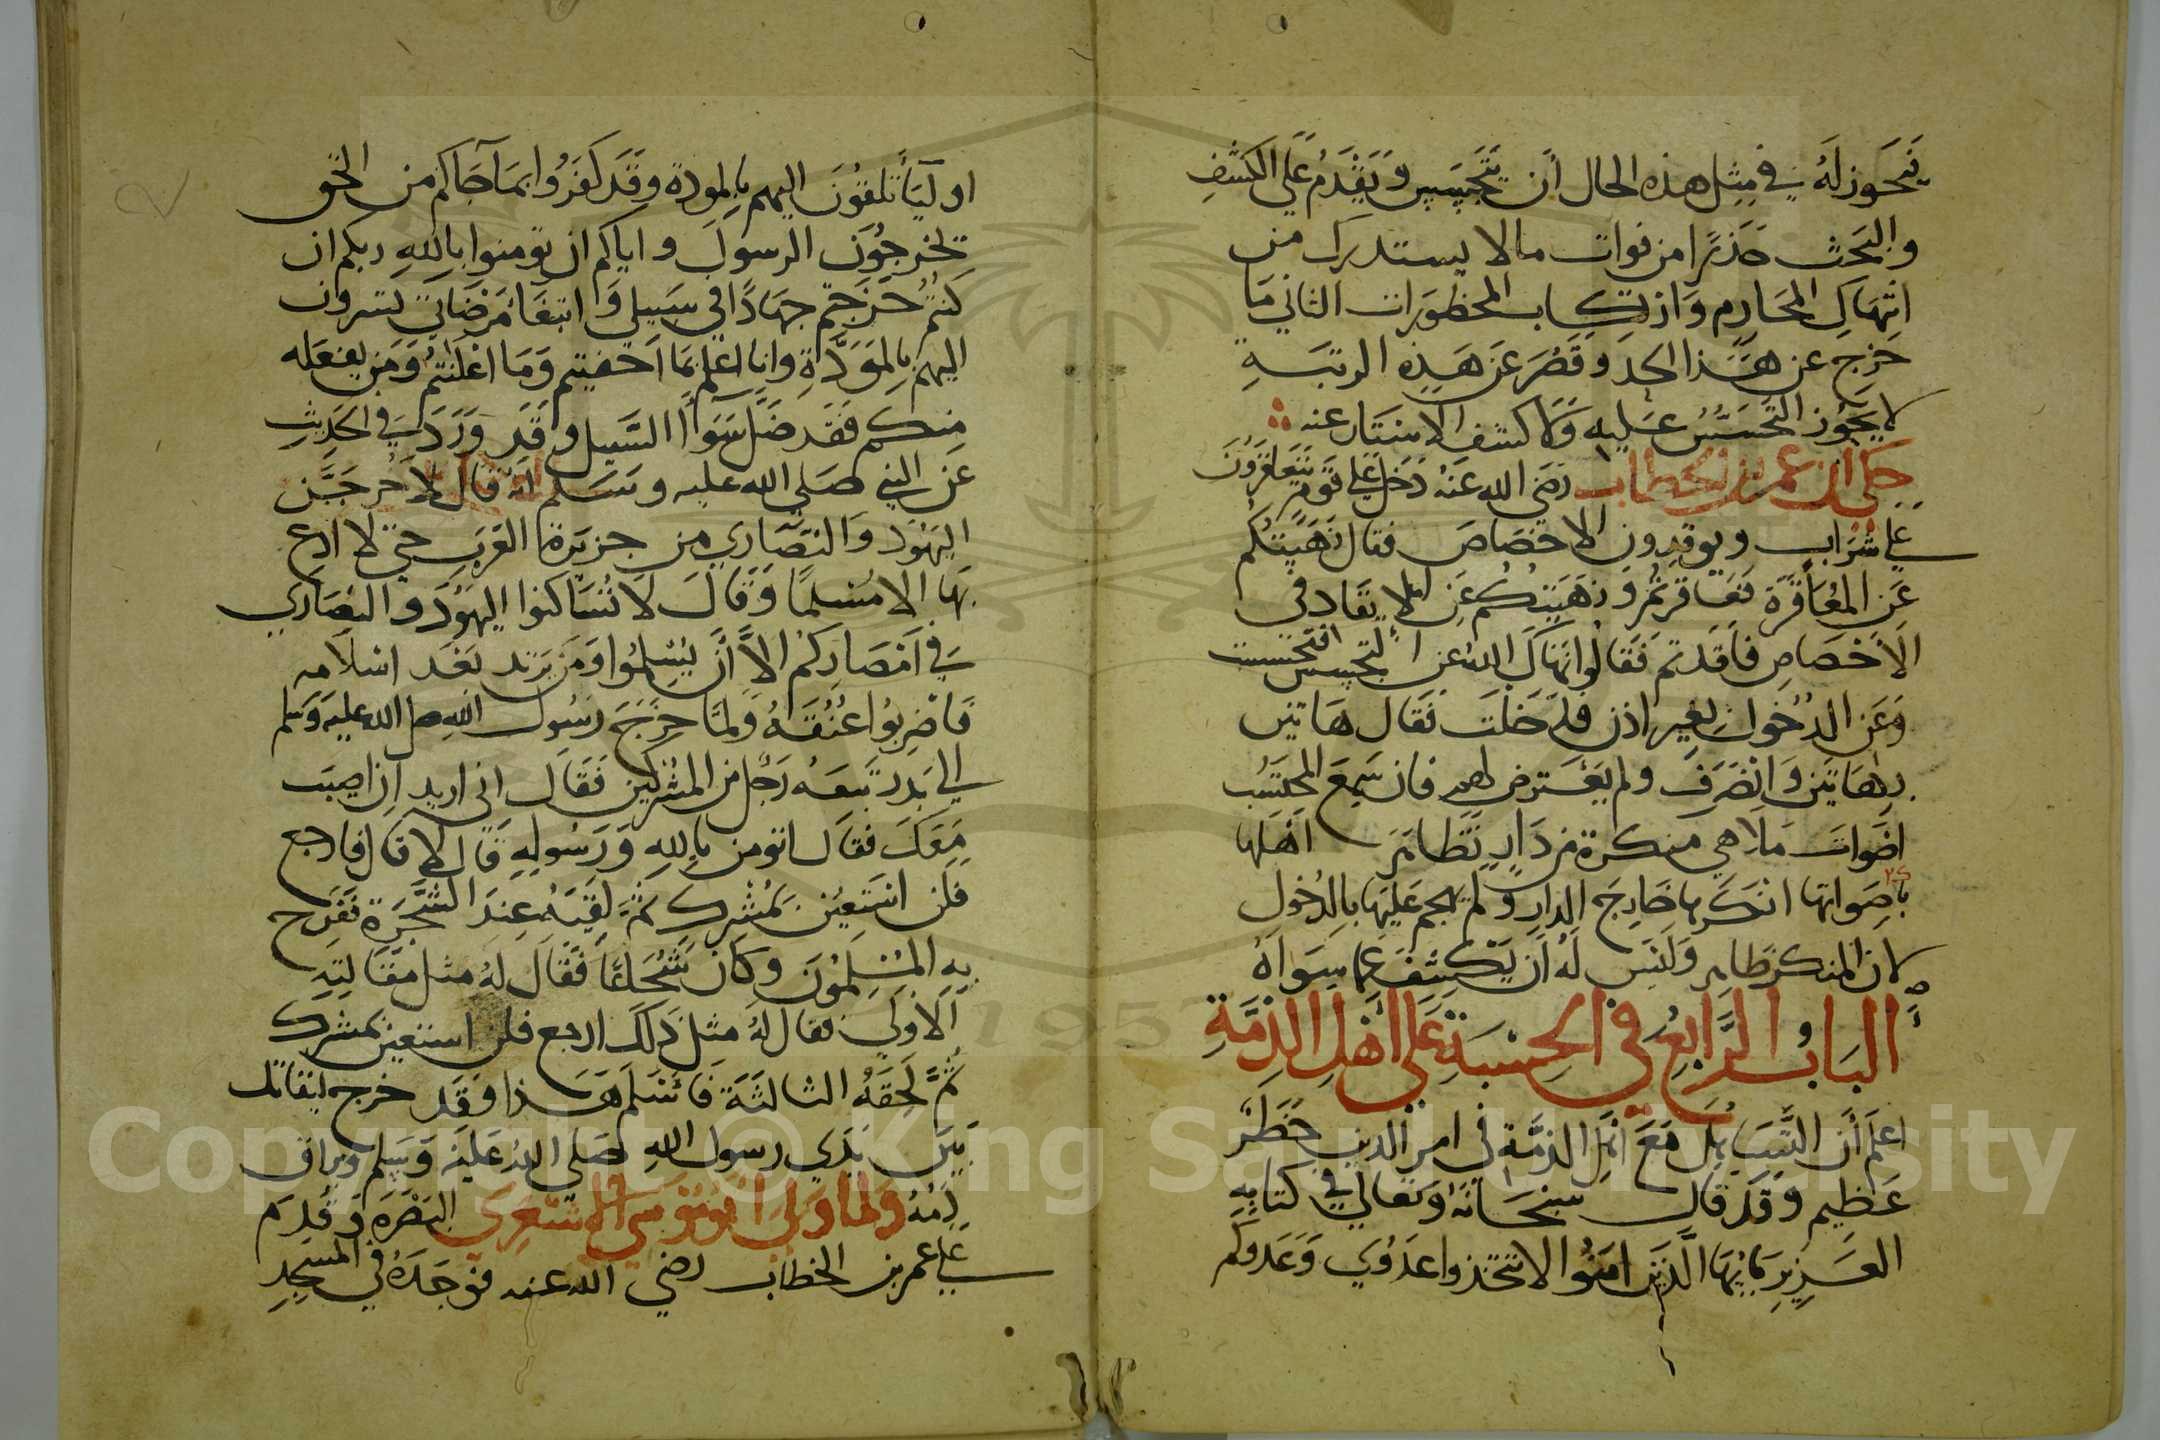 فيجوز له في مثل هذه الحال أن يتجسس ويقدم على الكشف
والبحث حذرا من فوات مالا يستدرك من
انتهاك المحارم وارتكاب المحظورات الثاني ما
خرج عن هذا الحد وقصر عن هذه الرتبة
لا يجوز التجسس عليه ولا كشف الاستتار عنه
حكي ان عمر بن الخطاب رضي الله عنه دخل على قوم يتعاقرون
على شراب ويوقدون الاخصاص فقال نهيتكم
عن المعاقرة فعاقرتم ونهيتكم عن الايقاد في
الاخصاص فاوقدتم فقالوا نهاك الله عن التجسس فتجسست
وعن الدخول بغير اذن فدخلت فقال هاتين
بهاتين وانصرف ولم يعترض لهم فان سمع المحتسب
اصوات ملاهي منكرة من دار تظاهر اهلها
باصواتها انكرها خارج الدار ولم يهجم عليها بالدخول
لان المنكر ظاهر وليس له ان يكشف عما سواه
الباب الرابع في الحسبة على أهل الذمة
اعلم أن التسهيل مع اهل الذمة في امر الدين خطر
عظيم وقد قال سبحانه وتعالى في كتابه
العزيز يايها الذين امنوا لا تتخذوا عدوي وعدوكم
اوليآ تلقون اليهم بالمودة وقد كفروا بما جاكم من الحق
يخرجون الرسول واياكم ان تومنوا بالله ربكم ان
كنتم خرجتم جهادا في سبيلي وابتغا مرضاتي تسرون
اليهم بالمودة وانا اعلم بما اخفيتم وما اعلنتم ومن يفعله
منكم فقد ضل سوآ السبيل وقد ورد في الحديث
عن النبي صلى الله عليه وسلم انه قال لاخرجن
اليهود والنصارى من جزيرة العرب حتى لا ادع
بها الا مسلما وقال لا تساكنوا اليهود والنصارى
في امصاركم الا أن يسلموا ومن يرتد بعد اسلامه
فاضربوا عنقه ولما خرج رسول الله صلى الله عليه وسلم
الى بدر تبعه رجل من المشركين فقال انى اريد ان اصيب
معك فقال اتومن بالله ورسوله قال لا قال فارجع
فلن استعين بمشرك ثم لقيه عند الشجرة ففرح
به المسلمون وكان شجاعا فقال له مثل مقالته
الاولى فقال له مثل ذلك ارجع فلن استعين بمشرك
ثم لحقه الثالثة فاسلم هذا وقد خرج ليقاتل
بين يدي رسول الله صلى الله عليه وسلم ويراق
دمه ولما ولي ابو موسى الاشعري البصرة وقدم
على عمر بن الخطاب رضي الله عنه فوجده في المسجد
Copyright © King Saud University
195